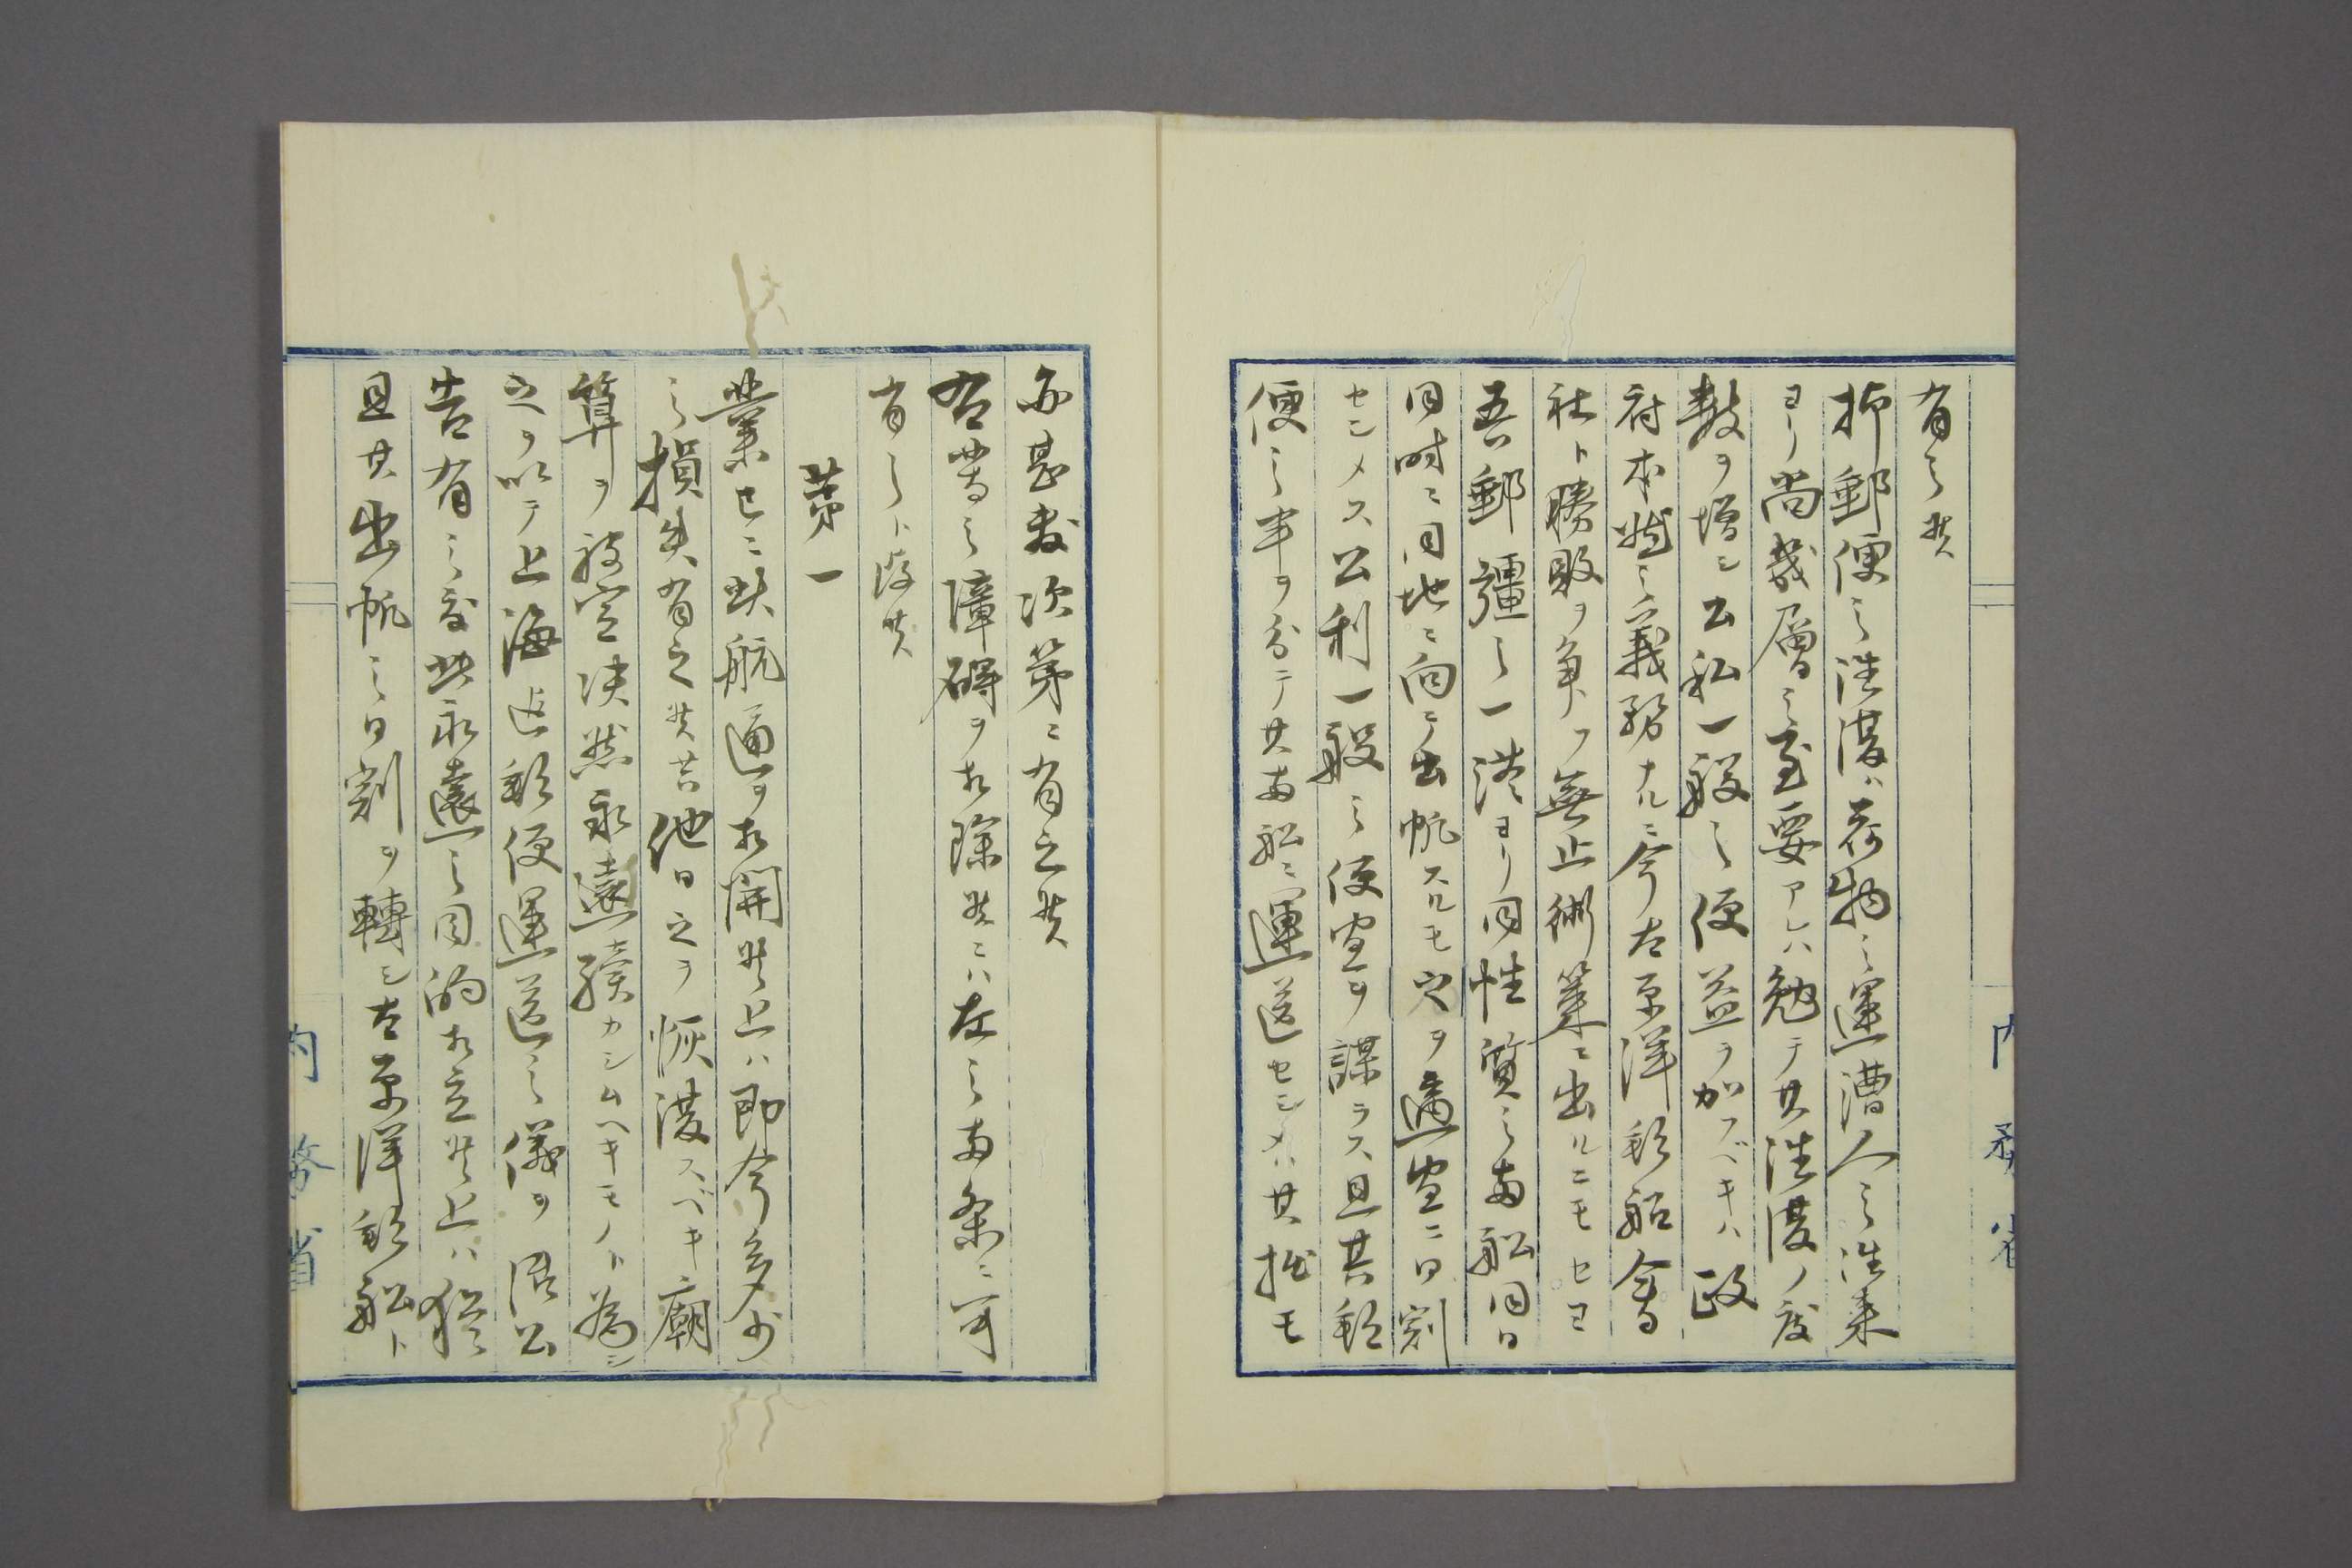 有之候
抑郵便之往復ハ荷物之運漕人之往来
ヨリ尚幾層之至要アレハ勉テ其往復ノ度
数ヲ増シ公私一般之便益ヲ加フベキハ政
府本然之義務ナルニ今太平洋郵船會
社ト勝敗ヲ争フ無止術策ニ出ルニモセヨ
吾郵彊之一港ヨリ同性質之両船同日
同時ニ同地ニ向テ出帆スルモ穴ヲ適宜ニ日割
セシメス公利一般之便宜ヲ謀ラス且其郵
便之事ヲ分テ其両船ニ運送セシメハ其拙モ
亦甚敷次第ニ有之候
右等之障碍ヲ相除候ニハ左之両条ニ可
有之ト存候
第一
業已ニ此航通ヲ相開候上ハ即今多少
之損失有之候共他日之ヲ恢復スベキ廟
算ヲ被定決然永遠續カシムヘキモノト為シ
之ヲ以テ上海迄郵便運送之儀ヲ
告有之度此永遠之目的相立候上ハ猶
且其出帆之日割ヲ轉シ太平洋郵船ト
内務省
内務省